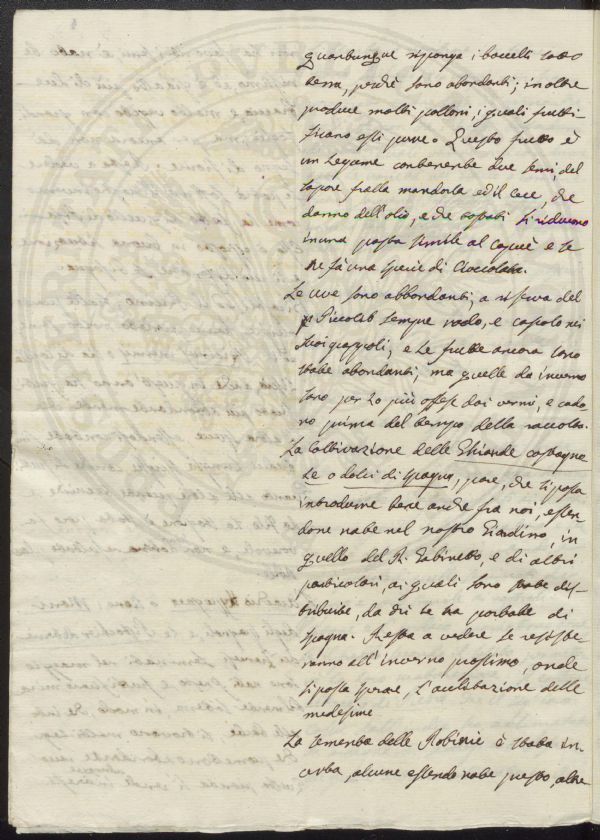 quantunque riponga i baccelli sotto
terra, perchè sono abondanti; inoltre
produce molti polloni, i quali frutti-
ficano essi pure. Questo frutto è
un Legume contenente due semi del
sapore fralla mandorla ed il cece, che
danno dell'olio, e che tostati si riducono
in una pasta simile al caffè e se
ne fà una specie di Cioccolata.
Le uve sono abbondanti, a riserva del
Piccolit sempre rado, e casolo nei
suoi grappoli, e le frutte ancora sono
state abondanti, ma quelle da inverno
sono per lo più offese dai vermi, e cado
no prima del tempo della raccolta.
La Coltivazione delle Ghiande castagno
le o dolci di Spagna, pare, che si possa
introdurre bene anche fra noi, essen-
done nate nel nostro Giardino, in
quello del R. Gabinetto, e di altri
particolari, ai quali sono state dis-
tribuite, da chi le ha portate di
Spagna. Resta a vedere se resiste-
ranno all'inverno prossimo, onde
si possa sperare, l'acclitazione delle
medesime
La sementa delle Robinie è stata in-
certa, alcune essendo nate presto, altre